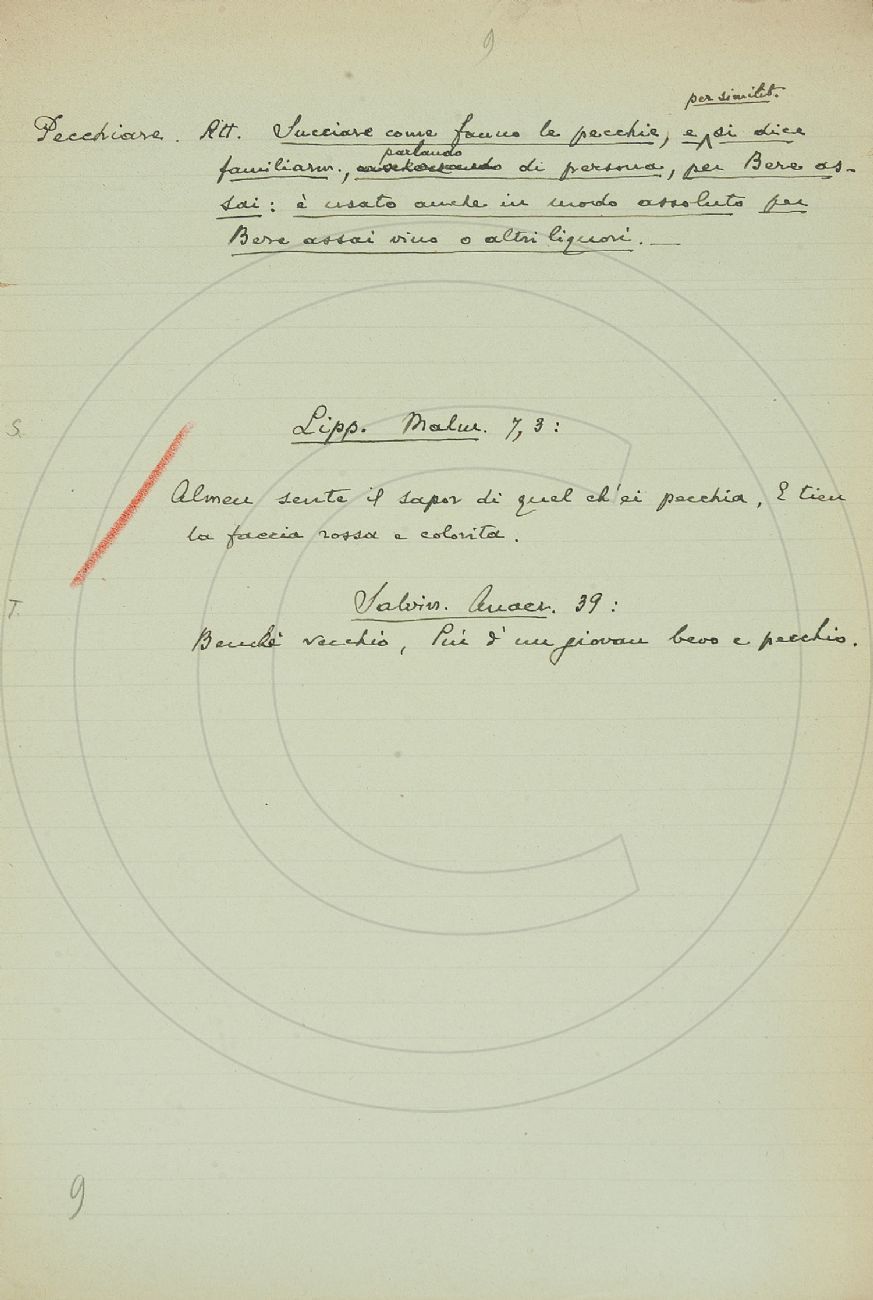 9
per similit.
Pecchiare. Att. Succiare come fanno le pecchie, e si dice
parlando
familiarm., di persona, per Bere as-
sai: è usato anche in modo assoluto per
Bere assai vino o altri liquori. —
S.
Lipp. Malm. 7, 3:
Almen sente il sapor di quel ch'ei pecchia, E tien
la faccia rossa e colorita.
T.
Salvin. Anacr. 39:
Benchè vecchio, Più d'un giovan bevo e pecchio.
9